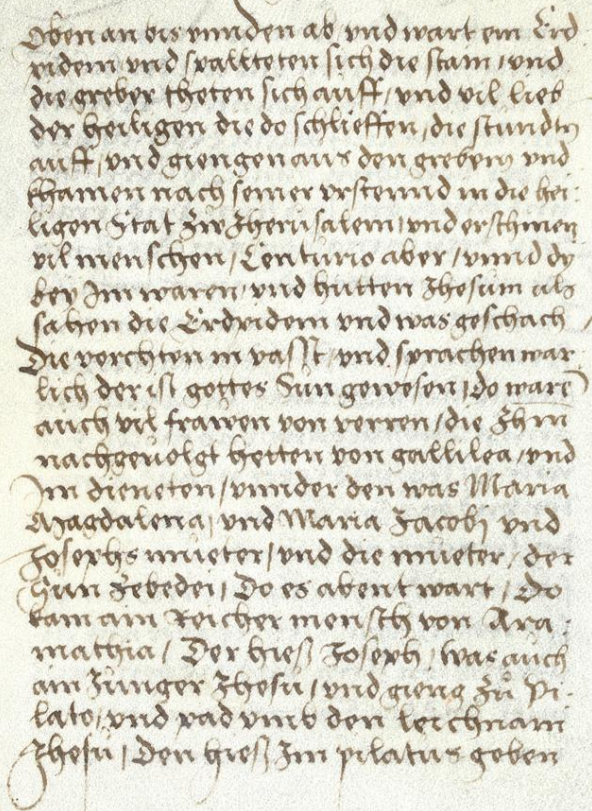 Oben an bis vnnden ab, vnd wart ein Erd
pidem vnd spallteten sich die stain, vnd
die greber theten sich auff, vnd vil lieb
der heiligen die do schlieffen, die stundtn
auff, vnd giengen aus den grebern vnd
khamen nach seiner vrstennd in die hei:
ligen Stat zw Jherusalem, vnd erschinen
vil menschen, Centurio aber, vnnd dy
bey Im waren, vnd hütten Jhesum als
sahen die Erdpidem vnd was geschach,
Die vorchten in vasst, vnd sprachen war
lich der ist gottes Sun gewesen, Do warē
auch vil frawen von verren, die Jhm
nachgeuolgt hetten von gallilea, vnd
Im dieneten, vnnder den was Maria
Magdalena, vnd Maria Jacobj vnd
Josephs mueter, vnd die mueter, der
Sün Zebedei, Do es abent wart, Do
kam ain Reicher mensch von Ara:
mathia, Der hieß Joseph, was auch
ain Junger Jhesu, vnd gieng zů Pi:
lato, vnd pad vmb den leichnam
Jhesu, Den hieß Im pilatus geben